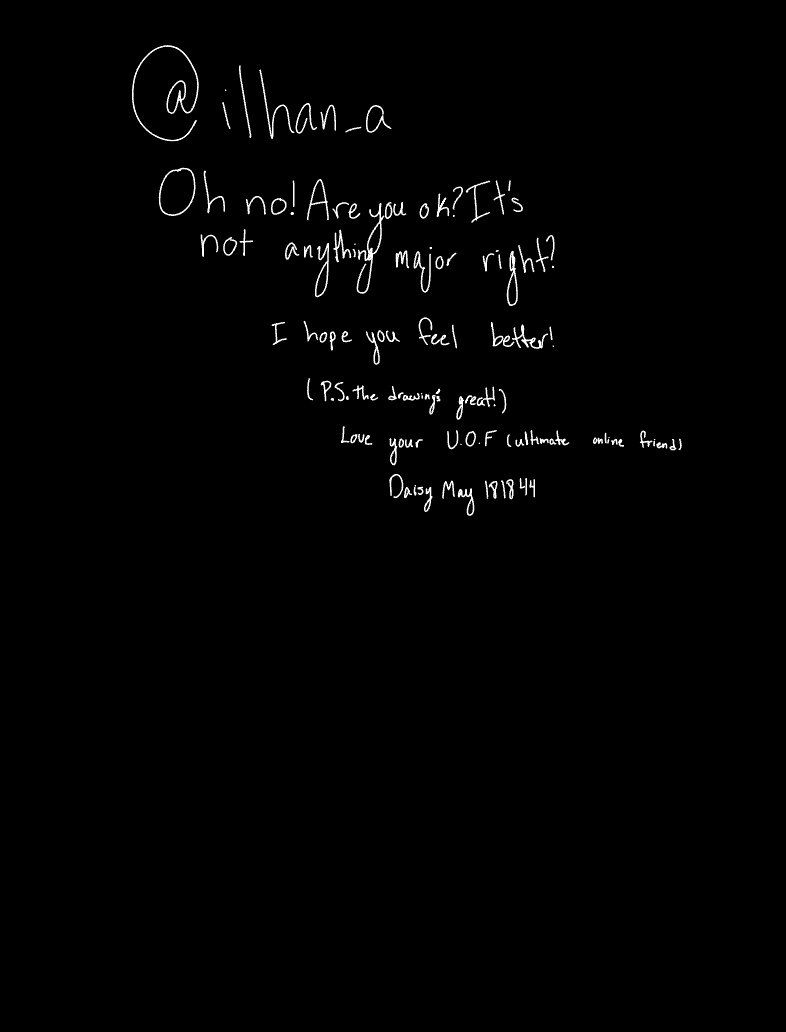 @ilhan_a
Oh no! Are you ok? It's
not anything major right?
I hope you feel better!
(P.S. the drawing's great!)
Love your U.O.F (ultimate online friend)
Daisy May 181844